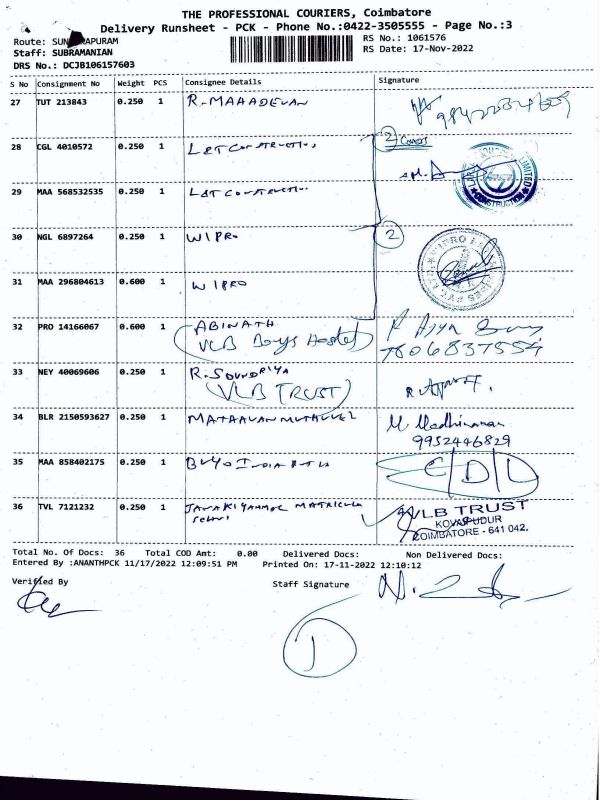 THE PROFESSIONAL COURIERS, Coimbatore
Delivery Runsheet - PCK - Phone No.:0422-3505555 - Page No.:3
Route: SUN RAPURAM
RS No.: 1061576
Staff: SUBRAMANIAN
RS Date: 17-Nov-2022
DRS No.: DCJB106157603
S No Consignment No Weight PCS Consignee Details Signature
27 TUT 213843 0.250 1 R. MAHADEVAN
28 CGL 4010572 0.250 1 L&T Construction
29 MAA 568532535 0.250 1 L&T Construction
30 NGL 6897264 0.250 1 WIPRO 2
31 MAA 296804613 0.600 1 WIPRO
32 PRO 14166067 0.600 1 ABINATH
VLB Boys Hostel 7806837554
33 NEY 40069606 0.250 1 R. SOUNDRIYA
(VLB TRUST)
34 BLR 2150593627 0.250 1
9952446829
35 MAA 858402175 0.250 1
36 TVL 7121232 0.250 1 VLB TRUST
KOVAIPUDUR
COIMBATORE - 641 042.
Total No. Of Docs: 36 Total COD Amt: 0.00 Delivered Docs: Non Delivered Docs:
Entered By :ANANTHPCK 11/17/2022 12:09:51 PM Printed On: 17-11-2022 12:10:12
Verified By Staff Signature